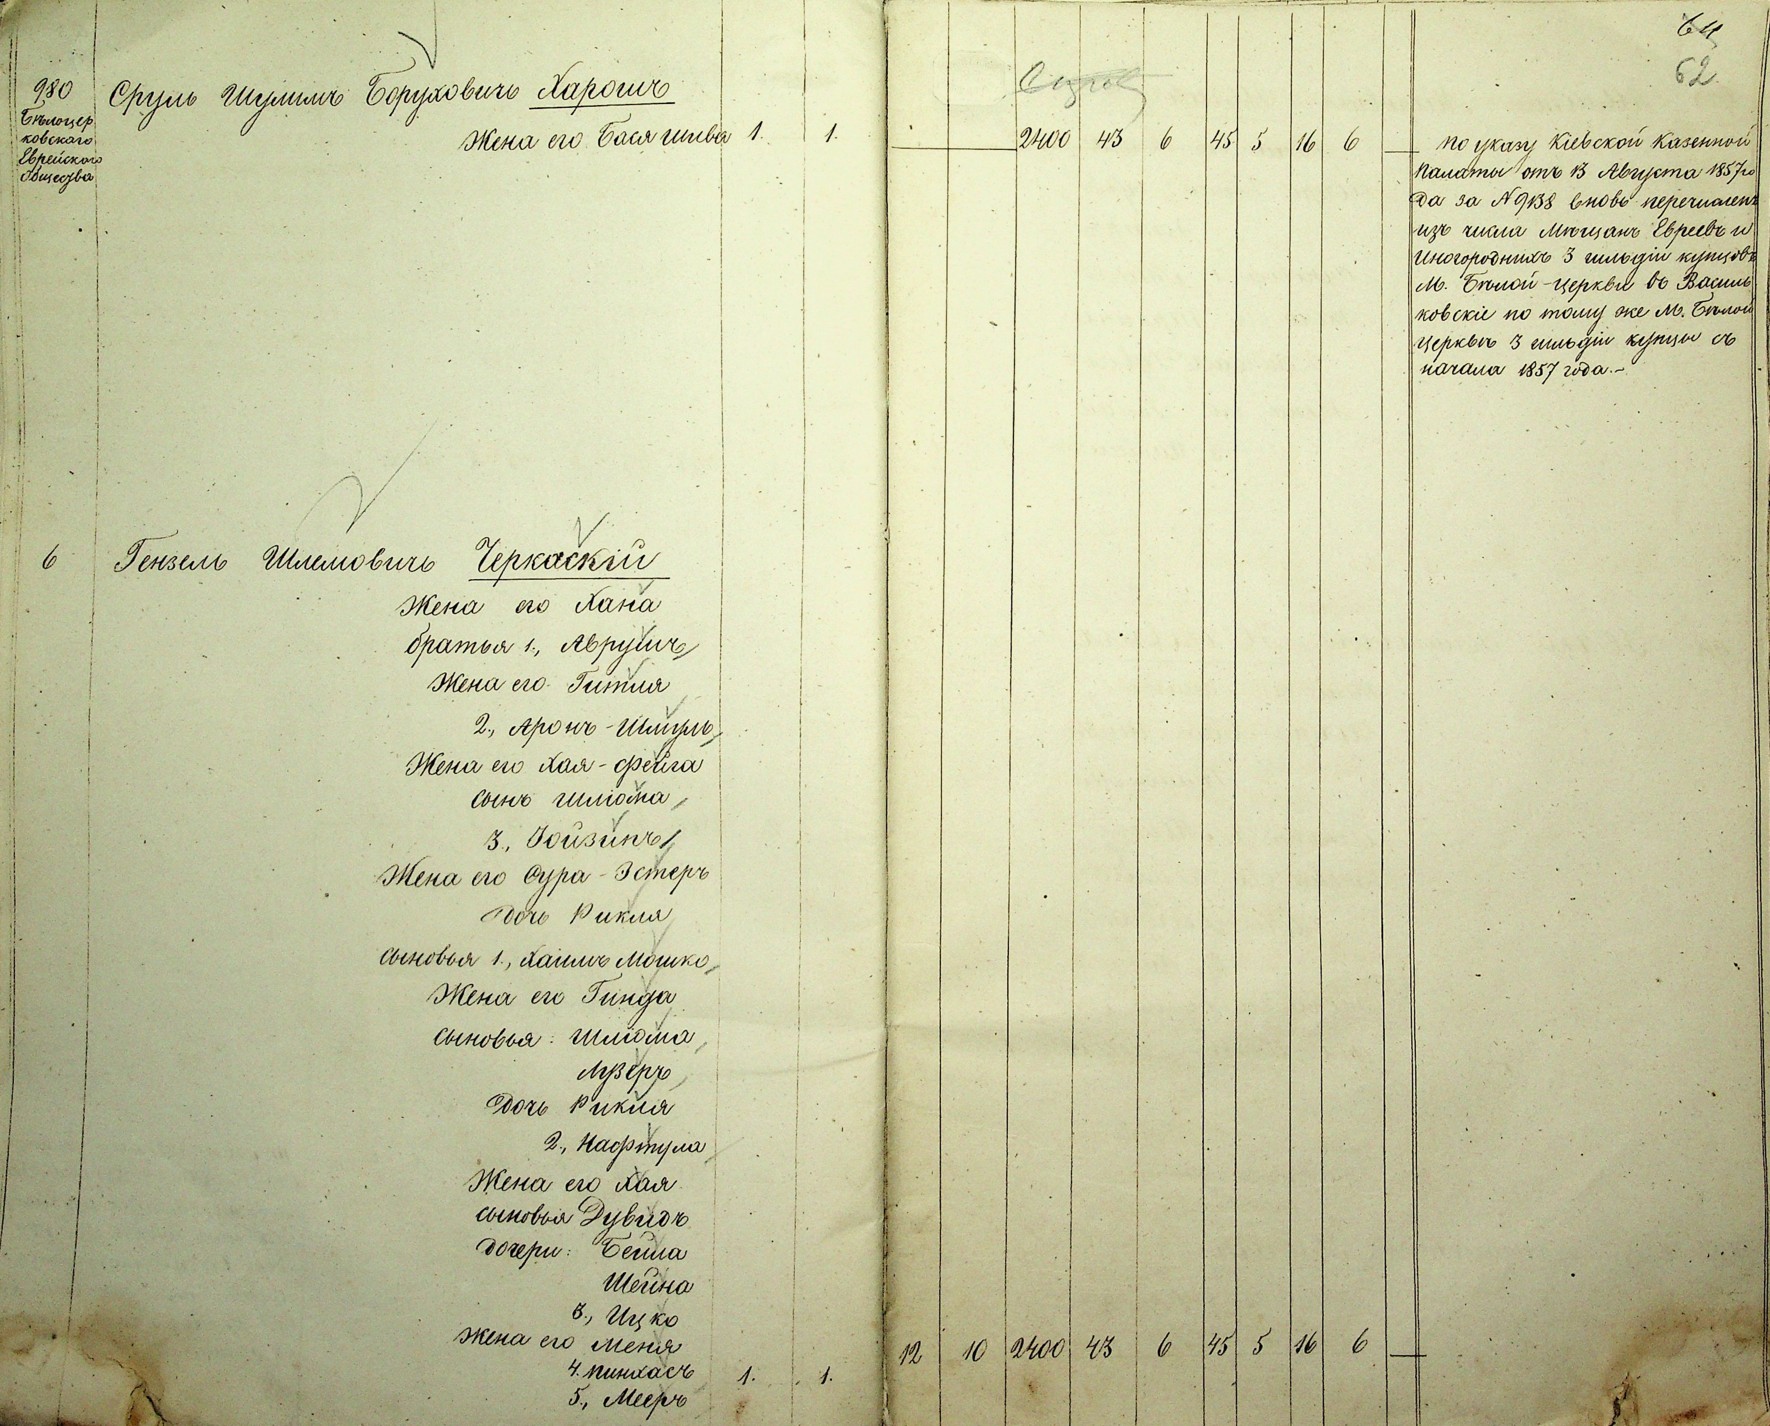 980 Сруль Шулимъ Боруховичъ Харошъ
Бѣлоцер
ковскаго
Еврейскаго
Общества
Жена его Бася Шива 1. 1.
6 Гензель Шлемовичъ Черкаскій
Жена его Хана
братья 1., Аврумъ
Жена его Гитля
2., Аронъ-Шмуль
Жена его Хая-Фейга
сынъ Шліома
3., Іойзипъ
Жена его Сура-Эстеръ
дочь Рикля
сыновья 1., Хаимъ Мошко
Жена его Гинда
сыновья: Шліома
Лузеръ
дочь Рикля
2., Нафтула
Жена его Хая
сыновья Дувидъ
дочери: Бейла
Шейна
3., Ицко
Жена его Меня
4. Пинхасъ 1. 1.
5., Мееръ
62
2400 43 6 45 5 16 6
По указу Кіевской Казенной
Палаты отъ 13 Августа 1857 го
да за N 9138 вновь перечислен
изъ числа Мѣщанъ Евреевъ и
Иногородныхъ 3 гильдіи купцовъ
М. Бѣлой-церкви въ Василь
ковскіе по тому же М. Бѣлой
церквѣ 3 гильдіи купцы съ
начала 1857 года.-
12 10 2400 43 6 45 5 16 6